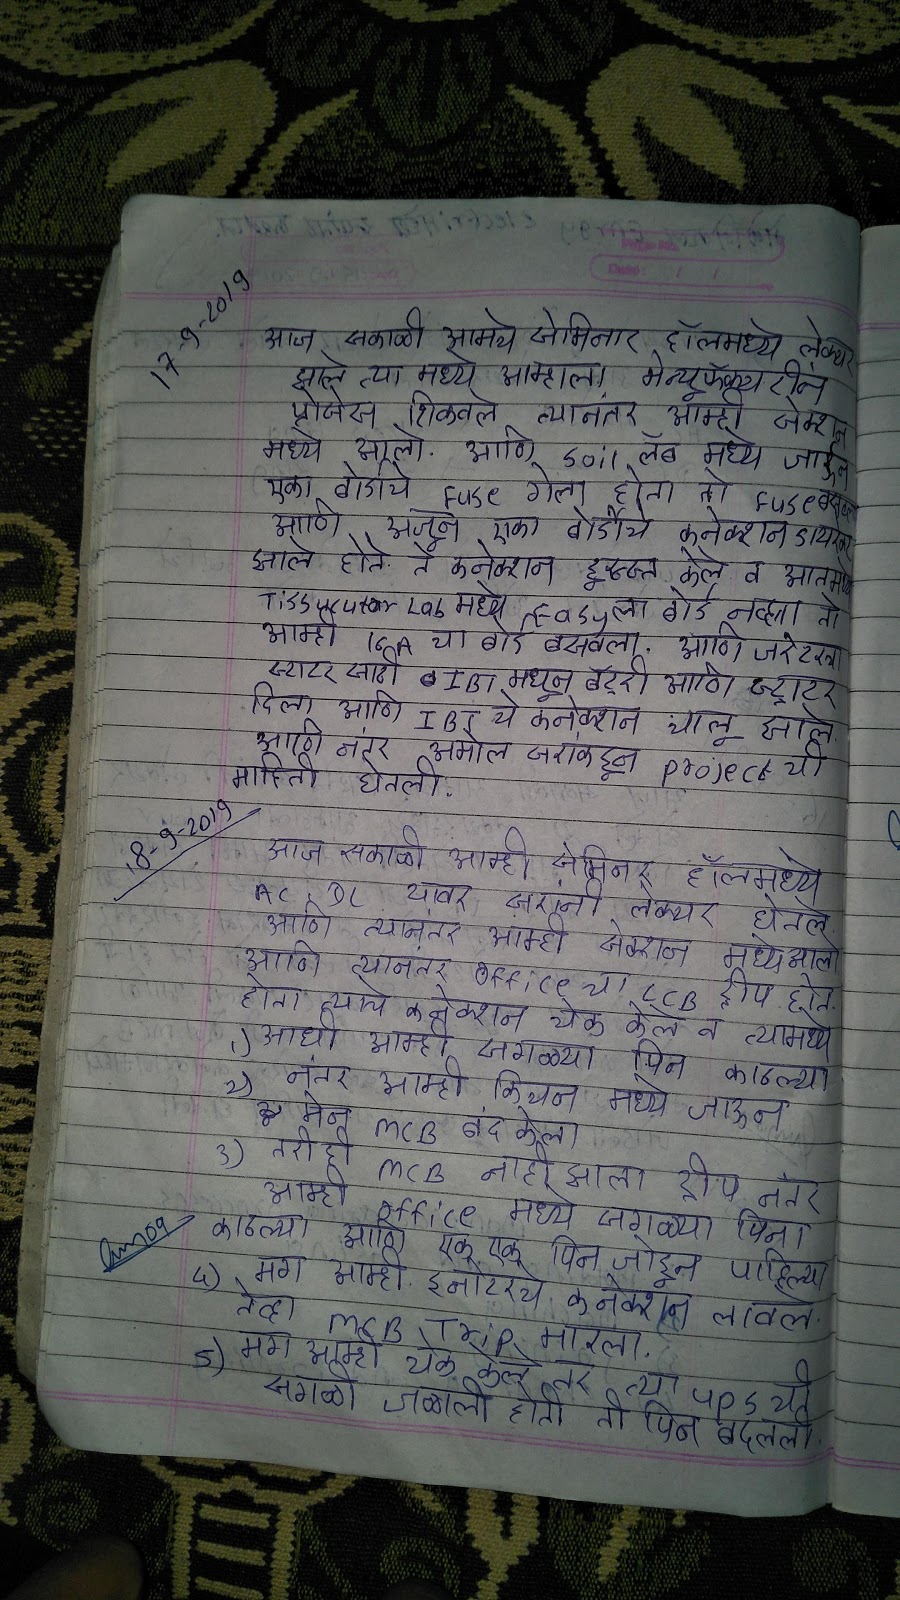 17-9-2019
आज सकाळी आमचे सेमिनार हॉलमध्ये लेक्चर
झाले त्या मध्ये आम्हाला मेन्यूफॅक्चरींग
प्रोजेस शिकवले त्यानंतर आम्ही सेक्शन
मध्ये आलो. आणि soil लॅब मध्ये जाऊन
एका बोर्डाचे Fuse गेला होता तो Fuse बसवला
आणि अजून एका बोर्डाचे कनेक्शन डायरेक्ट
झाले होते. ते कनेक्शन दुरुस्त केले व आतमध्ये
Lab मध्ये ला बोर्ड नव्हता तो
आम्ही 16A चा बोर्ड बसवला. आणि जरेटरचा
स्टाटर साठी IBT मधून बॅटरी आणि स्टाटर
दिला आणि IBT चे कनेक्शन चालू झाले.
आणि नंतर अमोल सरांकडून project ची
माहिती घेतली.
18-9-2019
आज सकाळी आम्ही सेमिनर हॉलमध्ये
AC, DC यावर सरांनी लेक्चर घेतले.
आणि त्यानंतर आम्ही सेक्शन मध्ये आलो
आणि त्यानंतर office चा CCB ट्रीप होत
होता त्याचे कनेक्शन चेक केले व त्यामध्ये
1) आधी आम्ही सगळ्या पिन काढल्या
2) नंतर आम्ही किचन मध्ये जाऊन
मेन MCB बंद केला
3) तरीही MCB नाही झाला ट्रीप नंतर
आम्ही office मध्ये सगळ्या पिना
काढल्या आणि एक एक पिन जोडून पाहिल्या
4) मग आम्ही इनोटरचे कनेक्शन लावले.
तेव्हा MCB Trip मारला.
5) मग आम्ही चेक केले तर त्या ups ची
सगळी जळाली होती ती पिन बदलली.